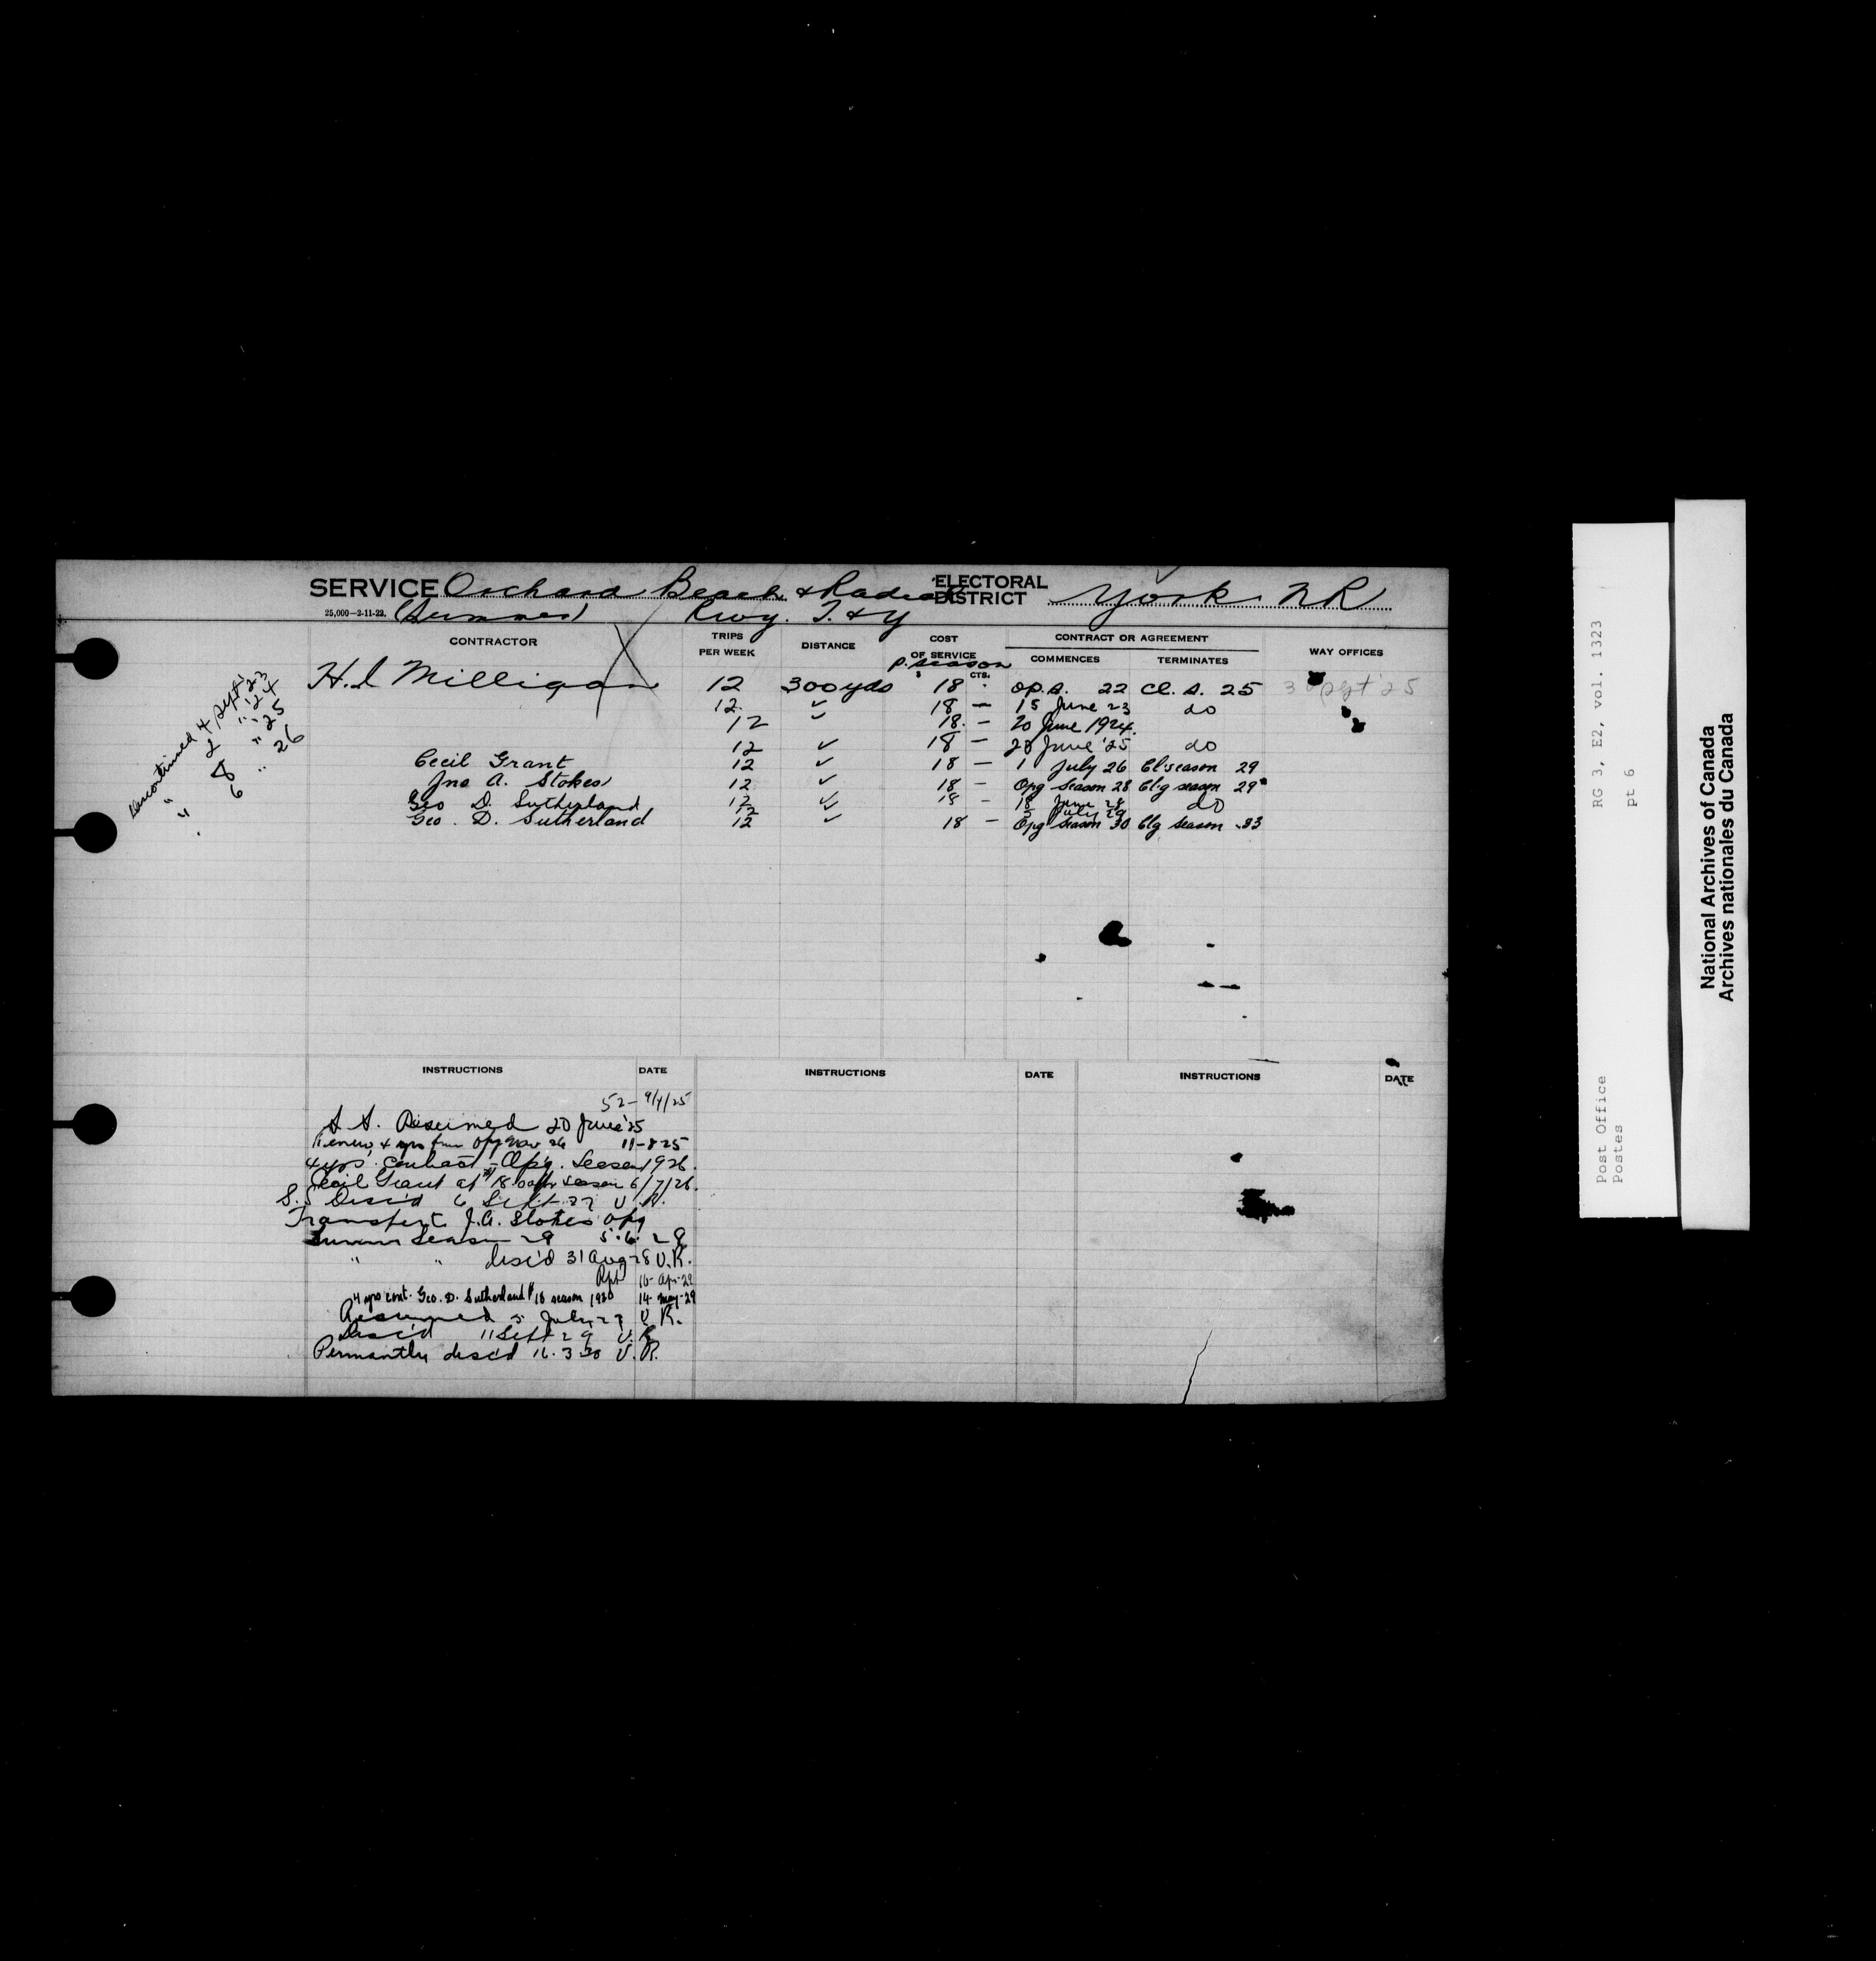 SERVICE Orchard Beach & Radial ELECTORAL DISTRICT York NR
25,000—2-11-22. (Summer) Rwy. T. & Y
CONTRACTOR TRIPS PER WEEK DISTANCE COST OF SERVICE CONTRACT OR AGREEMENT WAY OFFICES
p. season $ CTS. COMMENCES TERMINATES
H. L Milligan 12 300 yds 18 op. s. 22 cl. s. 25 3 Sept '25
12 " 18 — 15 June 23 do
12 " 18. — 20 June 1924.
12 " 18 — 20 June '25 do
Cecil Grant 12 " 18 — 1 July 26 Cl. season 29
Jno A. Stokes 12 " 18 — Opg Season 28 Clg season 29
Geo D. Sutherland 12 " 18 — 18 June 28 do
12 " 5 July 29
Geo. D. Sutherland 12 " 18 — Opg Season 30 Clg Season 33
Discontinued 4 Sept. '23
" 2 " '24
" 8 " 25
" 6 " 26
INSTRUCTIONS DATE INSTRUCTIONS DATE INSTRUCTIONS DATE
52- 9/4/25
S. S. Resumed 20 June '25
Renew 4 yrs from 26 11-8-25
4 yrs. contract - Op'g. Season 1926.
Cecil Grant at $18.00 season 6/7/26.
S.S Disc'd 6 Sept. 27 U.R.
Transfer to J.A. Stokes opg
Summer Season 28 5.6.28
" " disc'd 31 Aug 28 U.R.
Rpt 16-Apr-29
4 yrs cont. Geo. D. Sutherland $18 season 1930 14-May-29
Resumed 5 July 29 U.R.
Disc'd 11 Sept 29 U.R.
Permantly disc'd 16.3.30 U.R.
Post Office RG 3, E2, vol. 1323
Postes pt 6
National Archives of Canada
Archives nationales du Canada